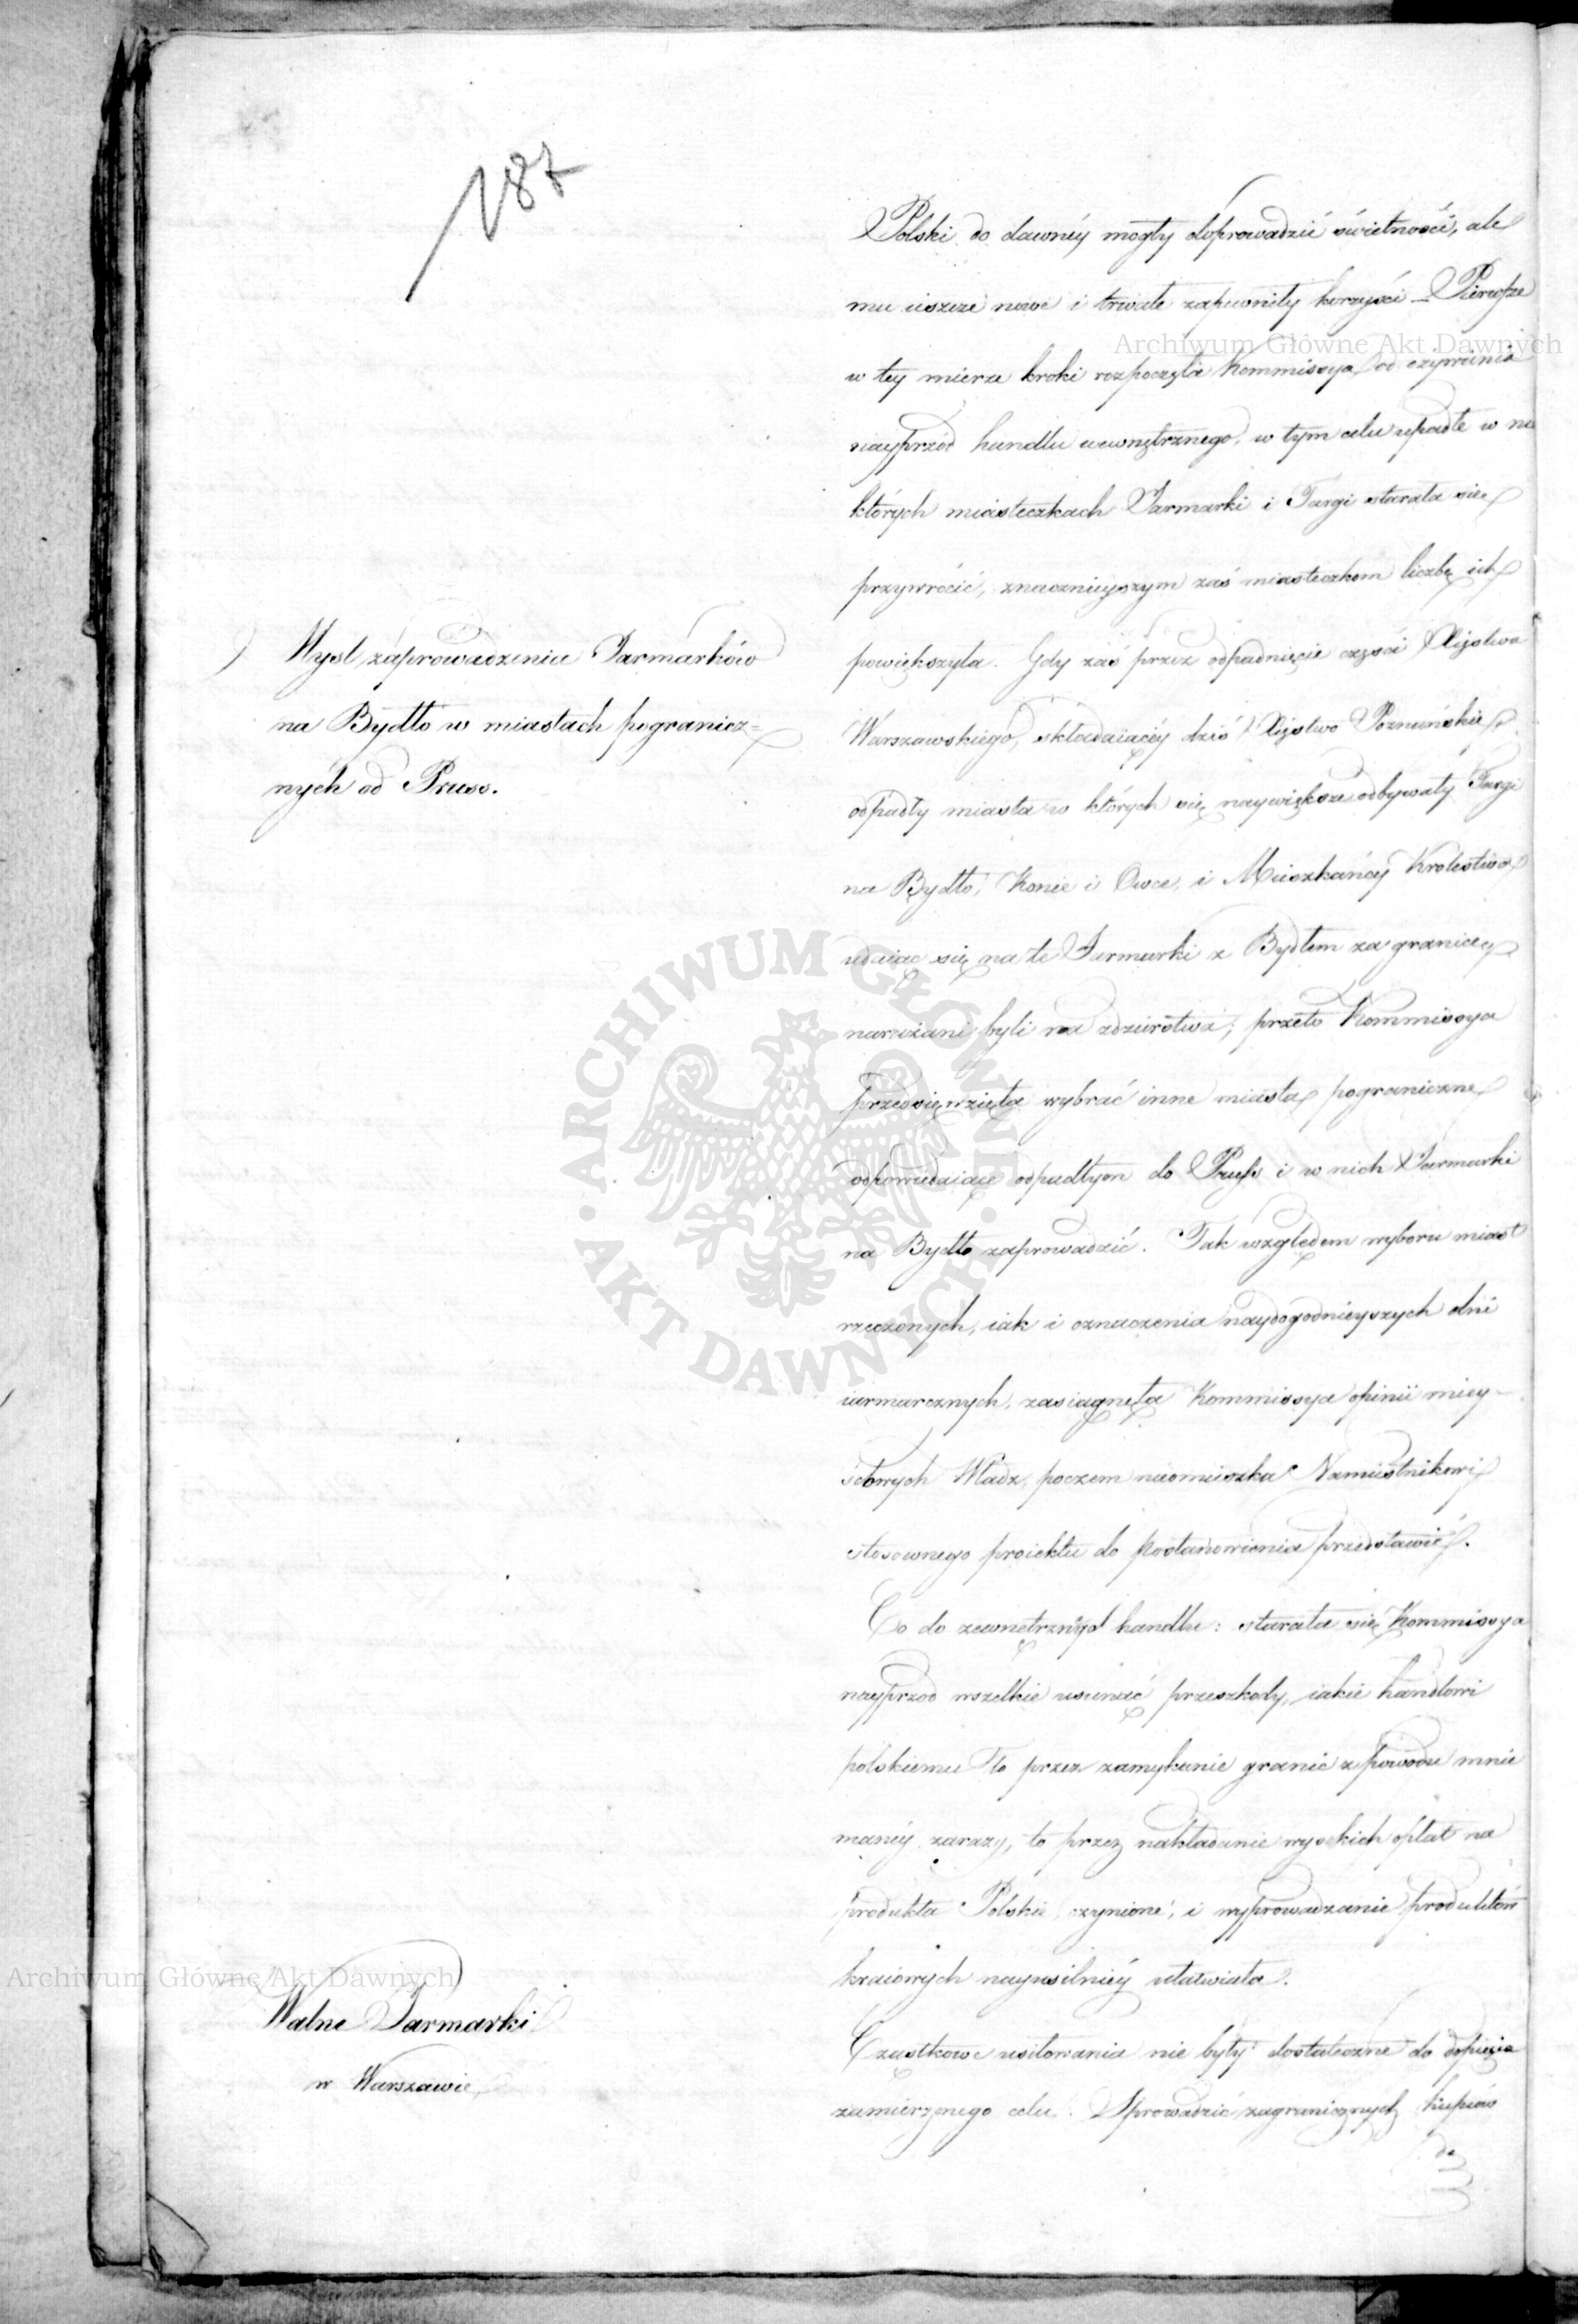 187
Polski do dawnéy mogły doprowadzić świetności, ale
mu ieszcze nowe i trwałe zapewniły korzyści _ Pierwsze
Archiwum Główne Akt Dawnych
w tey mierze kroki rozpoczęła Kommissya od ożywienia
nayprzód handlu wewnętrznego, w tym celu upadłe w nie
których miasteczkach Jarmarki i Targi starała się
przywrócić, znacznieyszym zaś miasteczkom liczbę ich
powiększyła. Gdy zaś przez odpadnięcie części Xięstwa
Warszawskiego, składaiącéy dziś Xięstwo Poznańskie,
odpadły miasta w których się naywiększe odbywały Targi
na Bydło, Konie i Owce, i Mieszkańcy Królestwa
udaiąc się na te Jarmarki z Bydłem za granicę,
narażani byli na zdzierstwa; przeto Kommissya
przedsięwzięła wybrać inne miasta pograniczne
odpowiadaiące odpadłym do Pruss i w nich Jarmarki
na Bydło zaprowadzić. Tak względem wyboru miast
rzeczonych, iak i oznaczenia naydogodnieyszych dni
iarmarcznych, zasiągnęła Kommissya opinii miey-
scowych Władz, poczem nieomieszka Namiestnikowi
stosownego proiektu do Postanowienia przedstawić.
Co do zewnętrznego handlu: starała się Kommissya
nayprzód wszelkie usunąć przeszkody, iakie handlowi
polskiemu to przez zamykanie granic z powodu mnie
manéy zarazy, to przez nakładanie wysokich opłat na
produkta Polskie, czynione, i wyprowadzanie produktów
kraiowych nayusilniéy ułatwiała.
Cząstkowe usiłowania nie były dostateczne do dopięcia
zamierzonego celu. Sprowadzić zagranicznych kupców
do
Mysl zaprowadzenia Jarmarków
na Bydło w miastach pogranicz=
nych od Pruss.
Archiwum Główne Akt Dawnych
Walne Jarmarki
w Warszawie
ARCHIWUM GŁÓWNE · AKT DAWNYCH ·